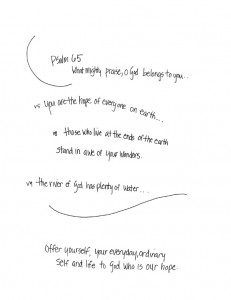 Psalm 65
What mighty praise, O God belongs to you..
v5 You are the hope of everyone on earth...
v8 those who live at the ends of the earth
stand in awe of your wonders.
v9 the river of God has plenty of water...
Offer yourself, your everyday, ordinary
self and life to God who is our hope.